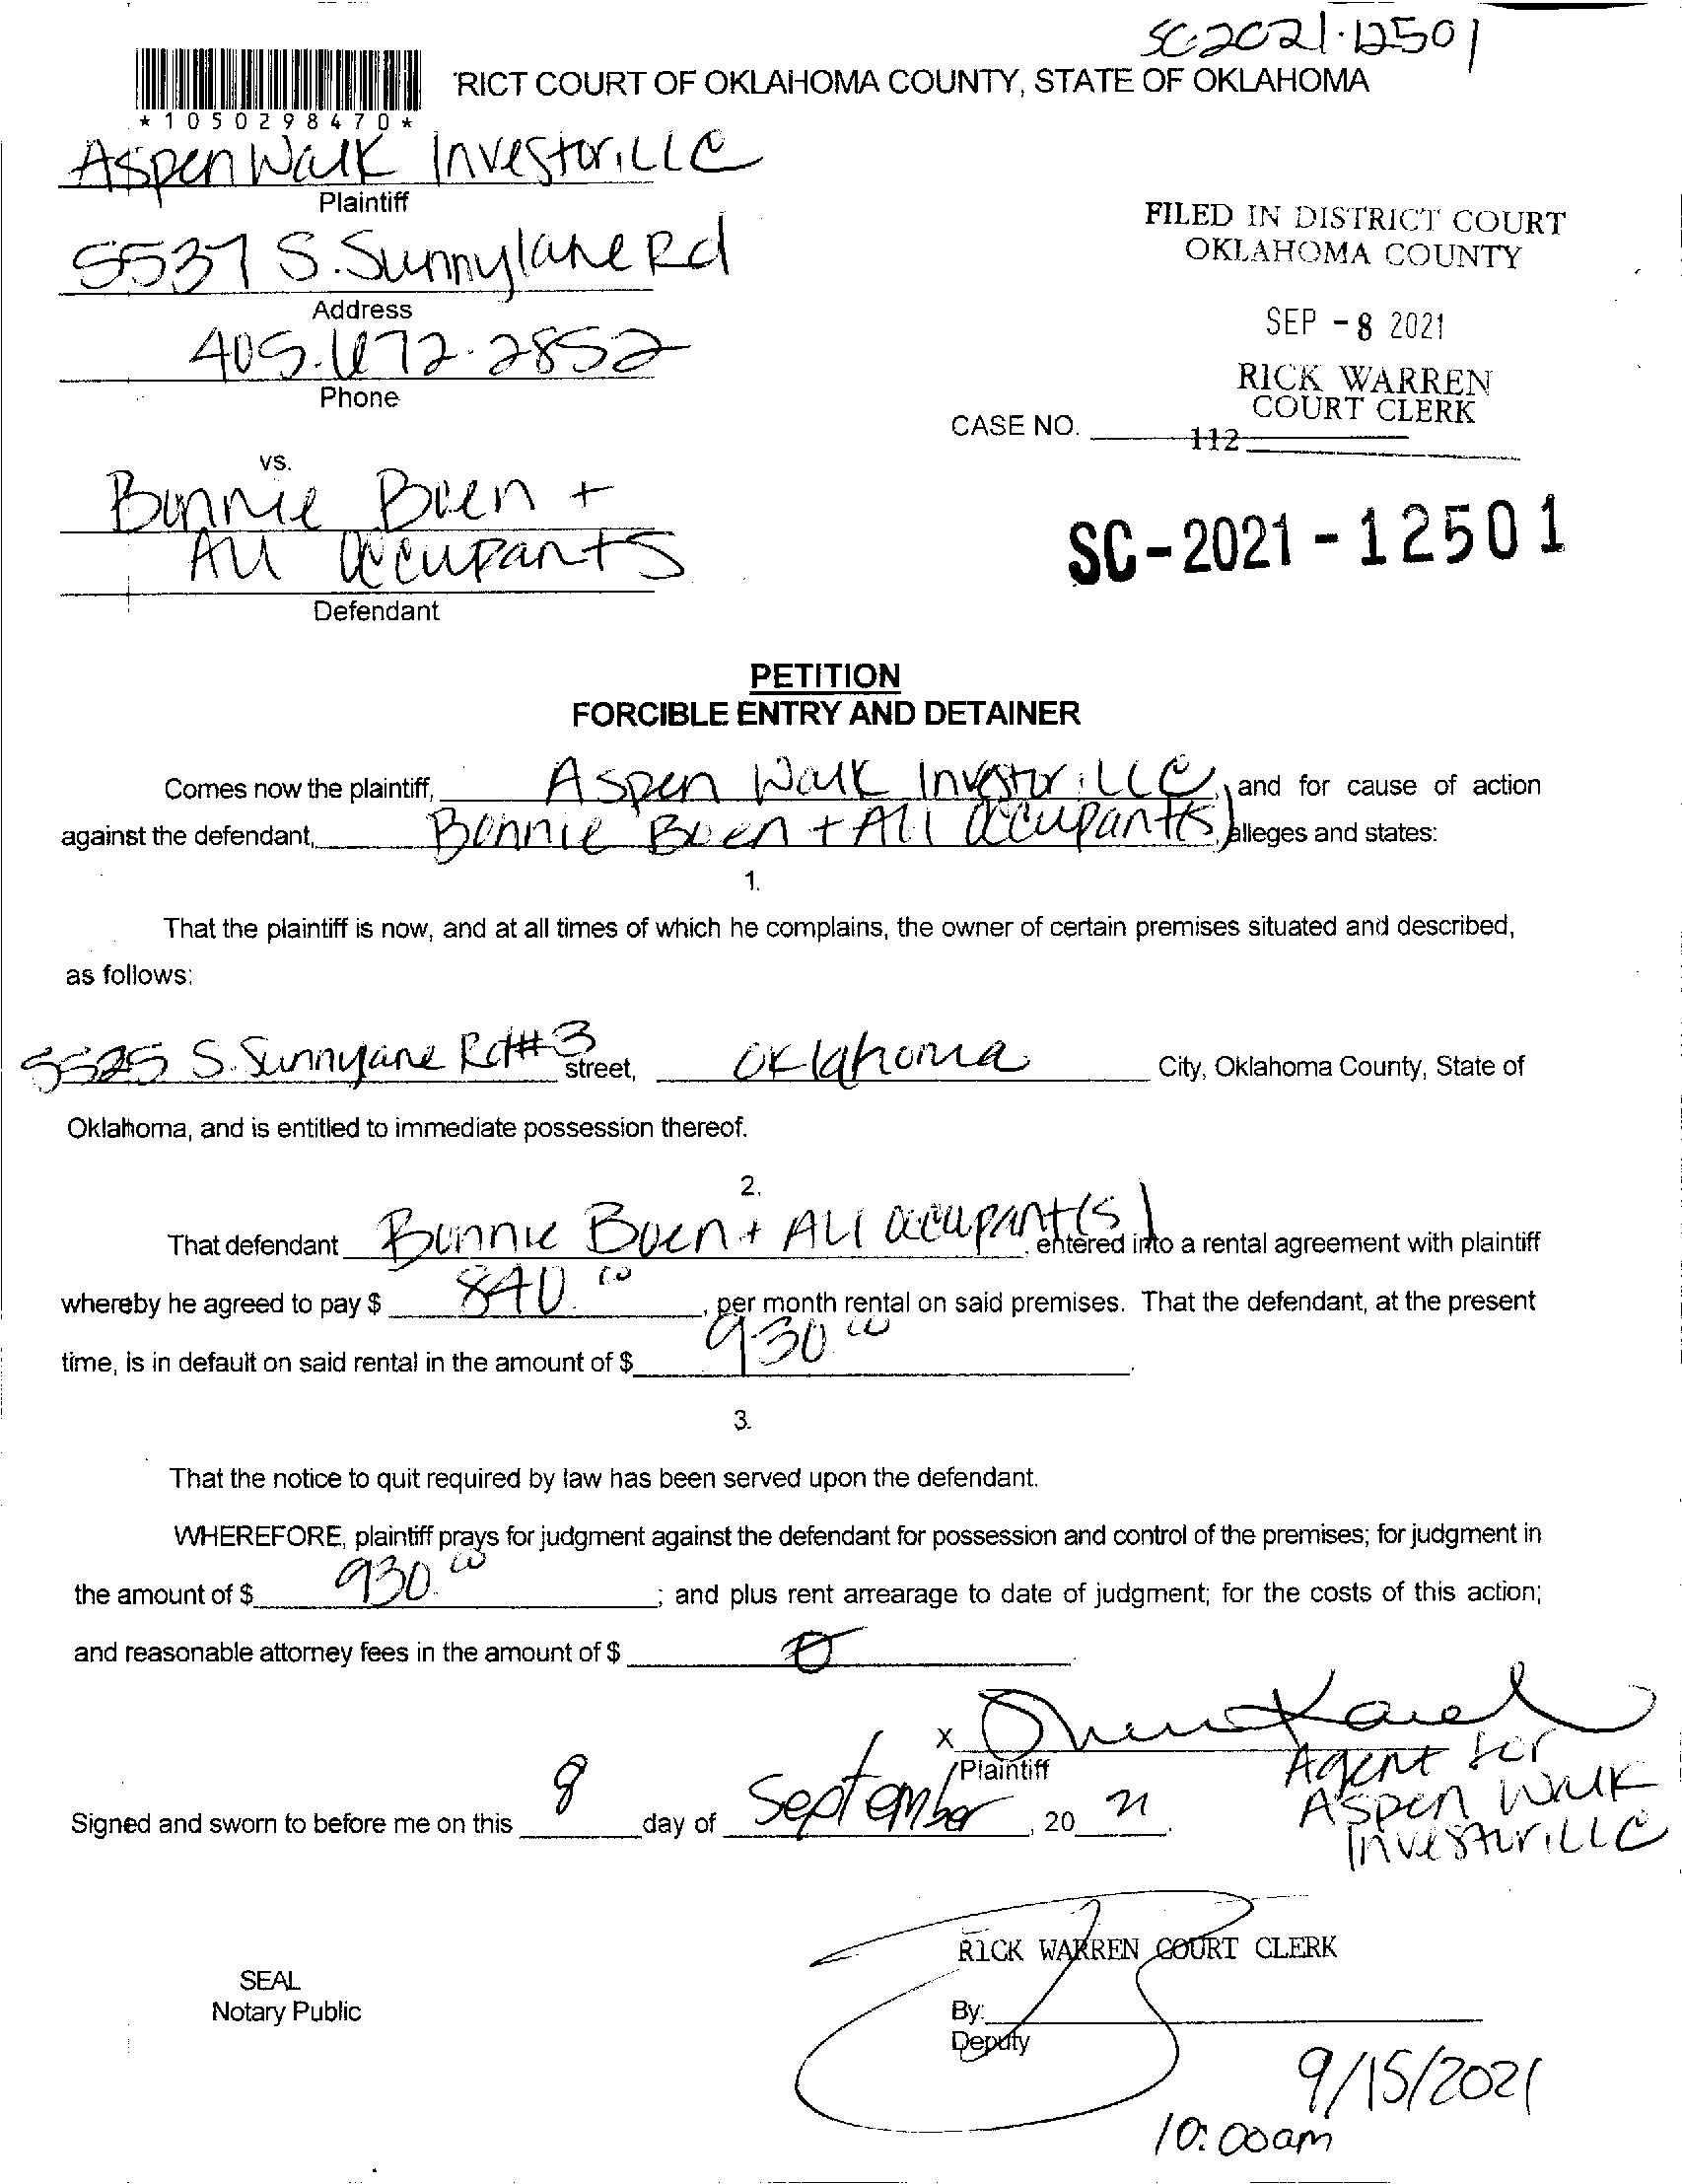 SC-2021-12501
RICT COURT OF OKLAHOMA COUNTY, STATE OF OKLAHOMA
*1050298470*
Aspen Walk Investor, LLC
Plaintiff
5537 S. Sunnylane Rd
Address
405.672.2852
Phone
FILED IN DISTRICT COURT
OKLAHOMA COUNTY
SEP -8 2021
RICK WARREN
COURT CLERK
CASE NO.
112
vs.
Bonnie +
All Occupants
Defendant
SC-2021-12501
PETITION
FORCIBLE ENTRY AND DETAINER
Comes now the plaintiff, Aspen Walk Investor, LLC, and for cause of action
against the defendant, Bonnie + All Occupant(s), alleges and states:
1.
That the plaintiff is now, and at all times of which he complains, the owner of certain premises situated and described,
as follows:
5525 S. Sunnyane Rd #3 street, Oklahoma City, Oklahoma County, State of
Oklahoma, and is entitled to immediate possession thereof.
2.
That defendant Bonnie + All Occupant(s), entered into a rental agreement with plaintiff
whereby he agreed to pay $ 840.00, per month rental on said premises. That the defendant, at the present
time, is in default on said rental in the amount of $ 930.00.
3.
That the notice to quit required by law has been served upon the defendant.
WHEREFORE, plaintiff prays for judgment against the defendant for possession and control of the premises; for judgment in
the amount of $ 930.00; and plus rent arrearage to date of judgment; for the costs of this action;
and reasonable attorney fees in the amount of $ 0.
X
Plaintiff
Agent for
Aspen Walk
Investor, LLC
Signed and sworn to before me on this 8 day of September, 20 21.
RICK WARREN COURT CLERK
SEAL
Notary Public
By:
Deputy
9/15/2021
10:00am